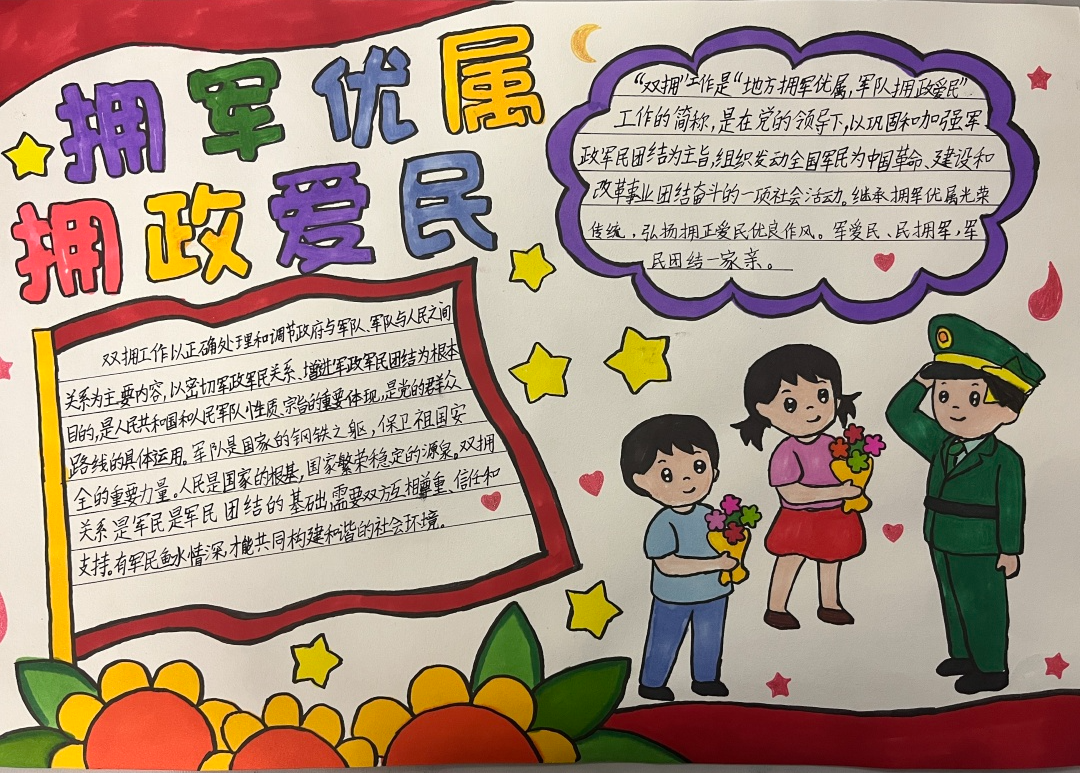 拥军优属
拥政爱民
“双拥”工作是“地方拥军优属,军队拥政爱民”
工作的简称,是在党的领导下,以巩固和加强军
政军民团结为主旨,组织发动全国军民为中国革命、建设和
改革事业团结奋斗的一项社会活动。继承拥军优属光荣
传统,弘扬拥正爱民优良作风。军爱民、民拥军,军
民团结一家亲。
双拥工作以正确处于里和调节政府与军队、军队与人民之间
关系为主要内容,以密切军政军民关系、增进军政军民团结为根本
目的,是人民共和国和人民军队性质、宗旨的重要体现,是党的群众
路线的具体运用。军队是国家的钢铁之躯,保卫祖国安
全的重要力量。人民是国家的根基,国家繁荣稳定的源泉。双拥
关系是军民是军民团结的基础,需要双方互相尊重、信任和
支持。有军民鱼水情深,才能共同构建和谐的社会环境。